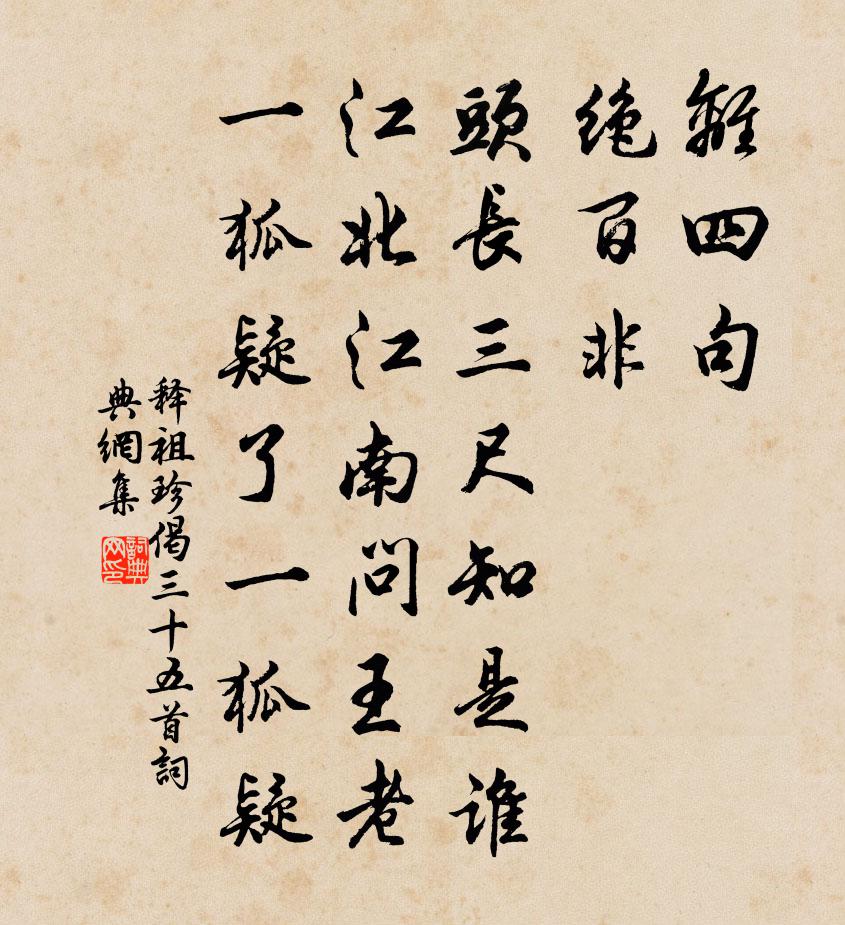 離四句
絶百非
頭長三尺知是誰
江北江南問王老
一狐疑了一狐疑
释祖珍偈三十五首詞
典網集
詞典
网印